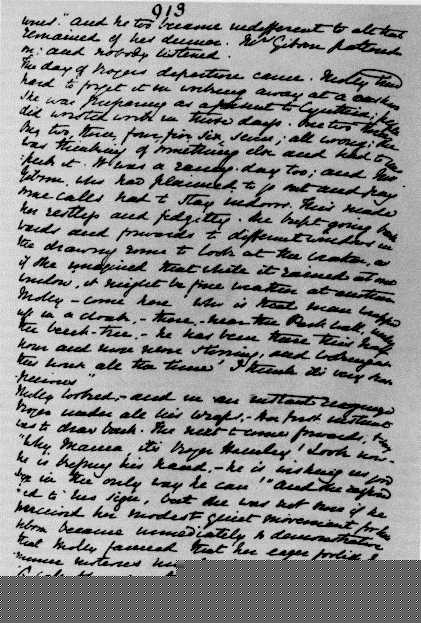 913
wives." And he too became indifferent to all that
remained of his dinner. Mrs Gibson pattered
on: and nobody listened.
The day of Rogers departure came. Molly tried
hard to forget it in working away at a cushion
she was preparing as a present to Cynthia; people
did worsted work in those days. One two three
One two, three, four five six seven; all wrong; she
was thinking of something else and had to un-
-pick it. It was a rainy day too; and Mrs
Gibson, who had planned to go out and pay
some calls had to stay indoors. This made
her restless and fidgetty. She kept going back-
wards and forwards to different windows in
the drawing room to look at the weather, as
if she imagined that while it rained at one
window, it might be fine weather at another
Molly - come here! Who is that man wrapped
up in a cloak, - there, - near the Park wall, under
the beech-tree. - he has been there this half-
hour and more never stirring, and looking at
this house all the time! I think it's very sus-
picious"
Molly looked, - and in an instant recognized
Roger under all his wraps. Her first instinct
was to draw back. The next to come forwards, & say
"Why Mama it's Roger Hamley! Look now -
he is kissing his hand, - he is wishing us good
bye in the only way he can!" And she respond
-ed to his sign, but she was not sure if he
perceived her modest quiet movement, for Mrs
Gibson became immediately so demonstrative
that Molly fancied that her eager foolish